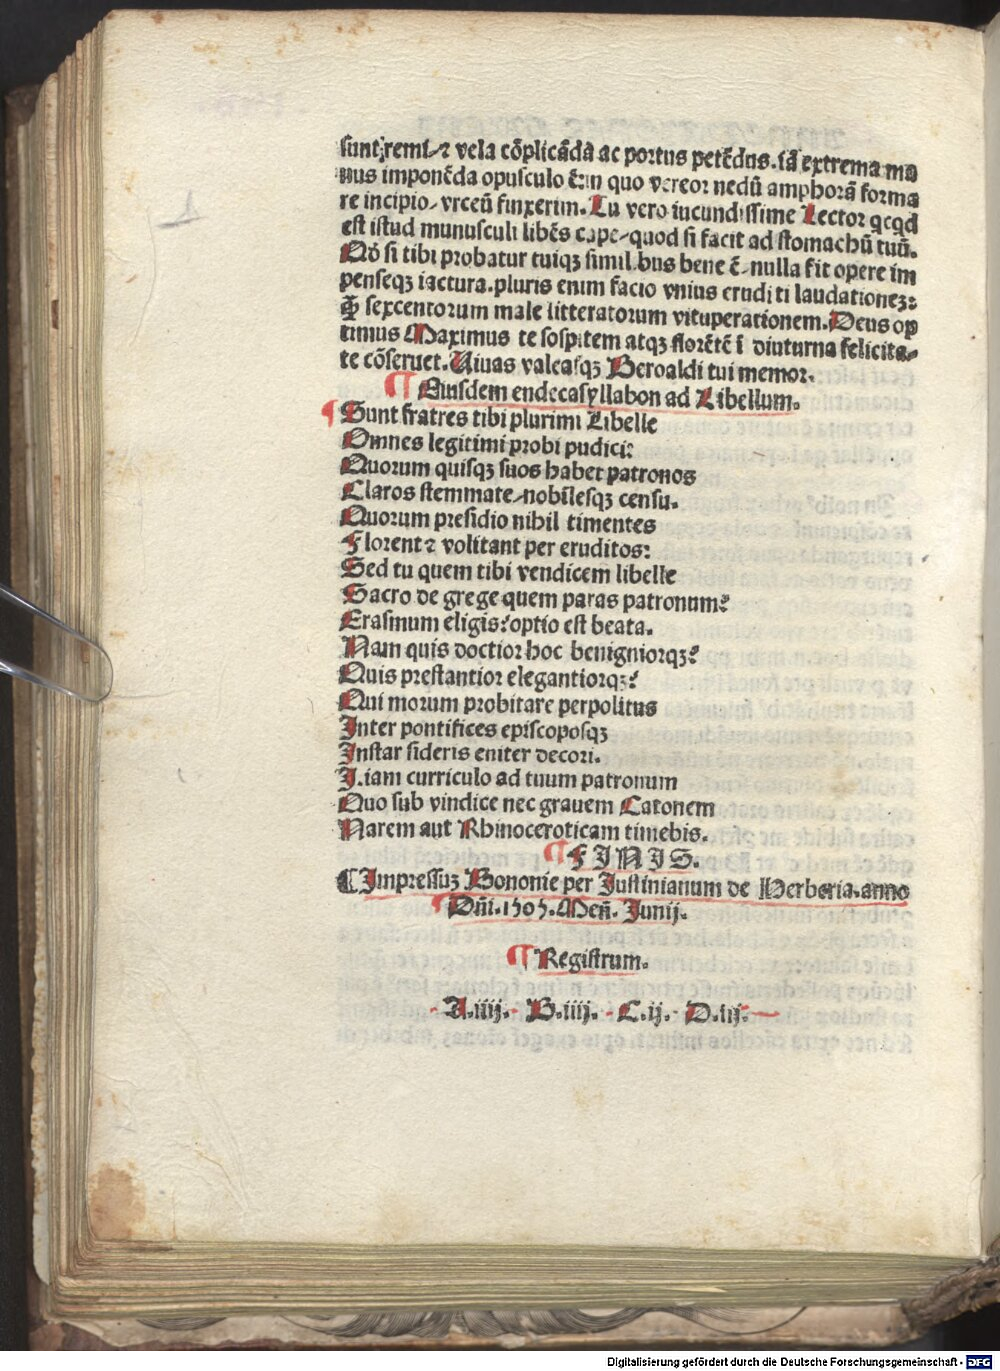 sunt, remi, ⁊ vela cõplicãda ac portus petẽdus. iã extrema ma
nus imponẽda opusculo ẽ: in quo vereor nedũ amphorã forma
re incipio, vrceũ finxerim. Tu vero iucundissime Lector qcqd
est istud munusculi libẽs cape, quod si facit ad stomachũ tuũ.
Qđ si tibi probatur tuiqꝫ similibus bene ẽ, nulla fit opere im
penseqꝫ iactura. pluris enim facio vnius eruditi laudationeꝫ:
ꝙ̃ sexcentorum male litteratorum vituperationem. Deus op
timus Maximus te sospitem atqꝫ florẽtẽ ĩ diuturna felicita-
te cõseruet. Uiuas valeasqꝫ Beroaldi tui memor.
¶ Eiusdem endecasyllabon ad Libellum.
¶ Sunt fratres tibi plurimi Libelle
Omnes legitimi probi pudici:
Quorum quisqꝫ suos habet patronos
Claros stemmate, nobilesqꝫ censu.
Quorum presidio nihil timentes
Florent ⁊ volitant per eruditos:
Sed tu quem tibi vendicem libelle
Sacro de grege quem paras patronum?
Erasmum eligis? optio est beata.
Nam quis doctior hoc benigniorqꝫ?
Quis prestantior elegantiorqꝫ?
Qui morum probitate perpolitus
Inter pontifices episcoposqꝫ
Instar sideris eniter decori.
I, iam curriculo ad tuum patronum
Quo sub vindice nec grauem Catonem
Narem aut Rhinoceroticam timebis.
¶ FINIS.
¶ Impressuꝫ Bononie per Iustinianum de Herberia. anno
Dñi. 1505. Meñ. Junij.
¶ Registrum.
A.iiij. B.iiij. C.ij. D.iij.
Digitalisierung gefördert durch die Deutsche Forschungsgemeinschaft - DFG